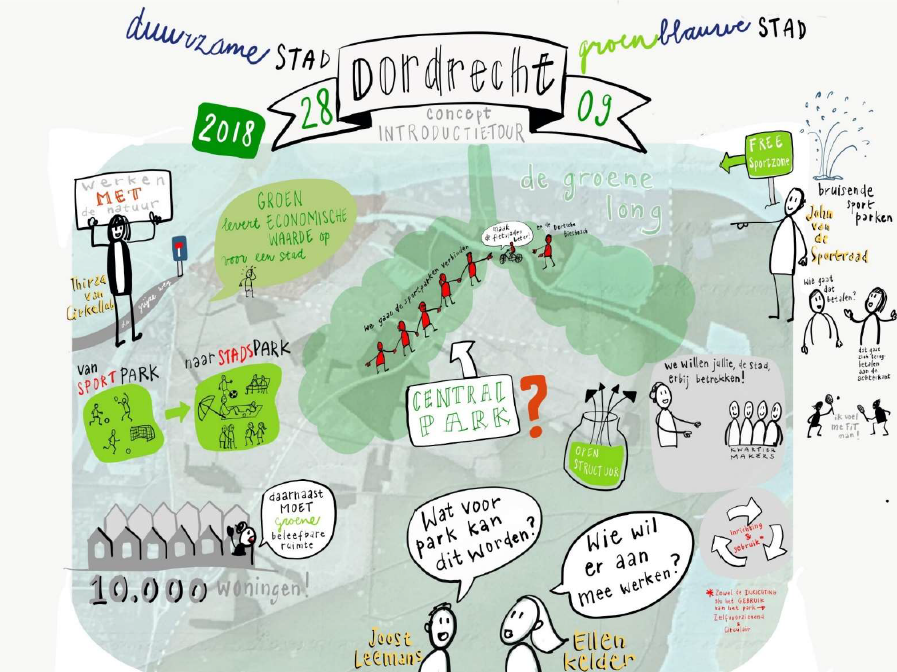 duurzame STAD
groenblauwe STAD
Dordrecht
28
09
2018
concept
INTRODUCTIETOUR
werken
MET
de natuur
Thirza
van
Cirkellab
de grijze weg
GROEN
levert ECONOMISCHE
WAARDE op
voor een stad
de groene
long
we gaan de sportparken verbinden
maak
fietspaden
beter!
FREE
Sportzone
bruisende
sport
parken
John
van
de
Sportraad
Wie gaat
dat
betalen?
dat gaat
zich terug-
betalen
aan de
achterkant
ik voel
me FIT
man!
van
SPORTPARK
naar STADSPARK
CENTRAL
PARK
?
OPEN
STRUCTUUR
we willen jullie, de stad,
erbij betrekken!
KWARTIER
MAKERS
daarnaast
MOET
groene
beleefbare
ruimte
10.000 woningen!
Wat voor
park kan
dit worden?
Wie wil
er aan
mee werken?
inrichting
&
gebruik*
* Zowel de INRICHTING
als het GEBRUIK
van het park
Joost
Leemans
Ellen
Kelder